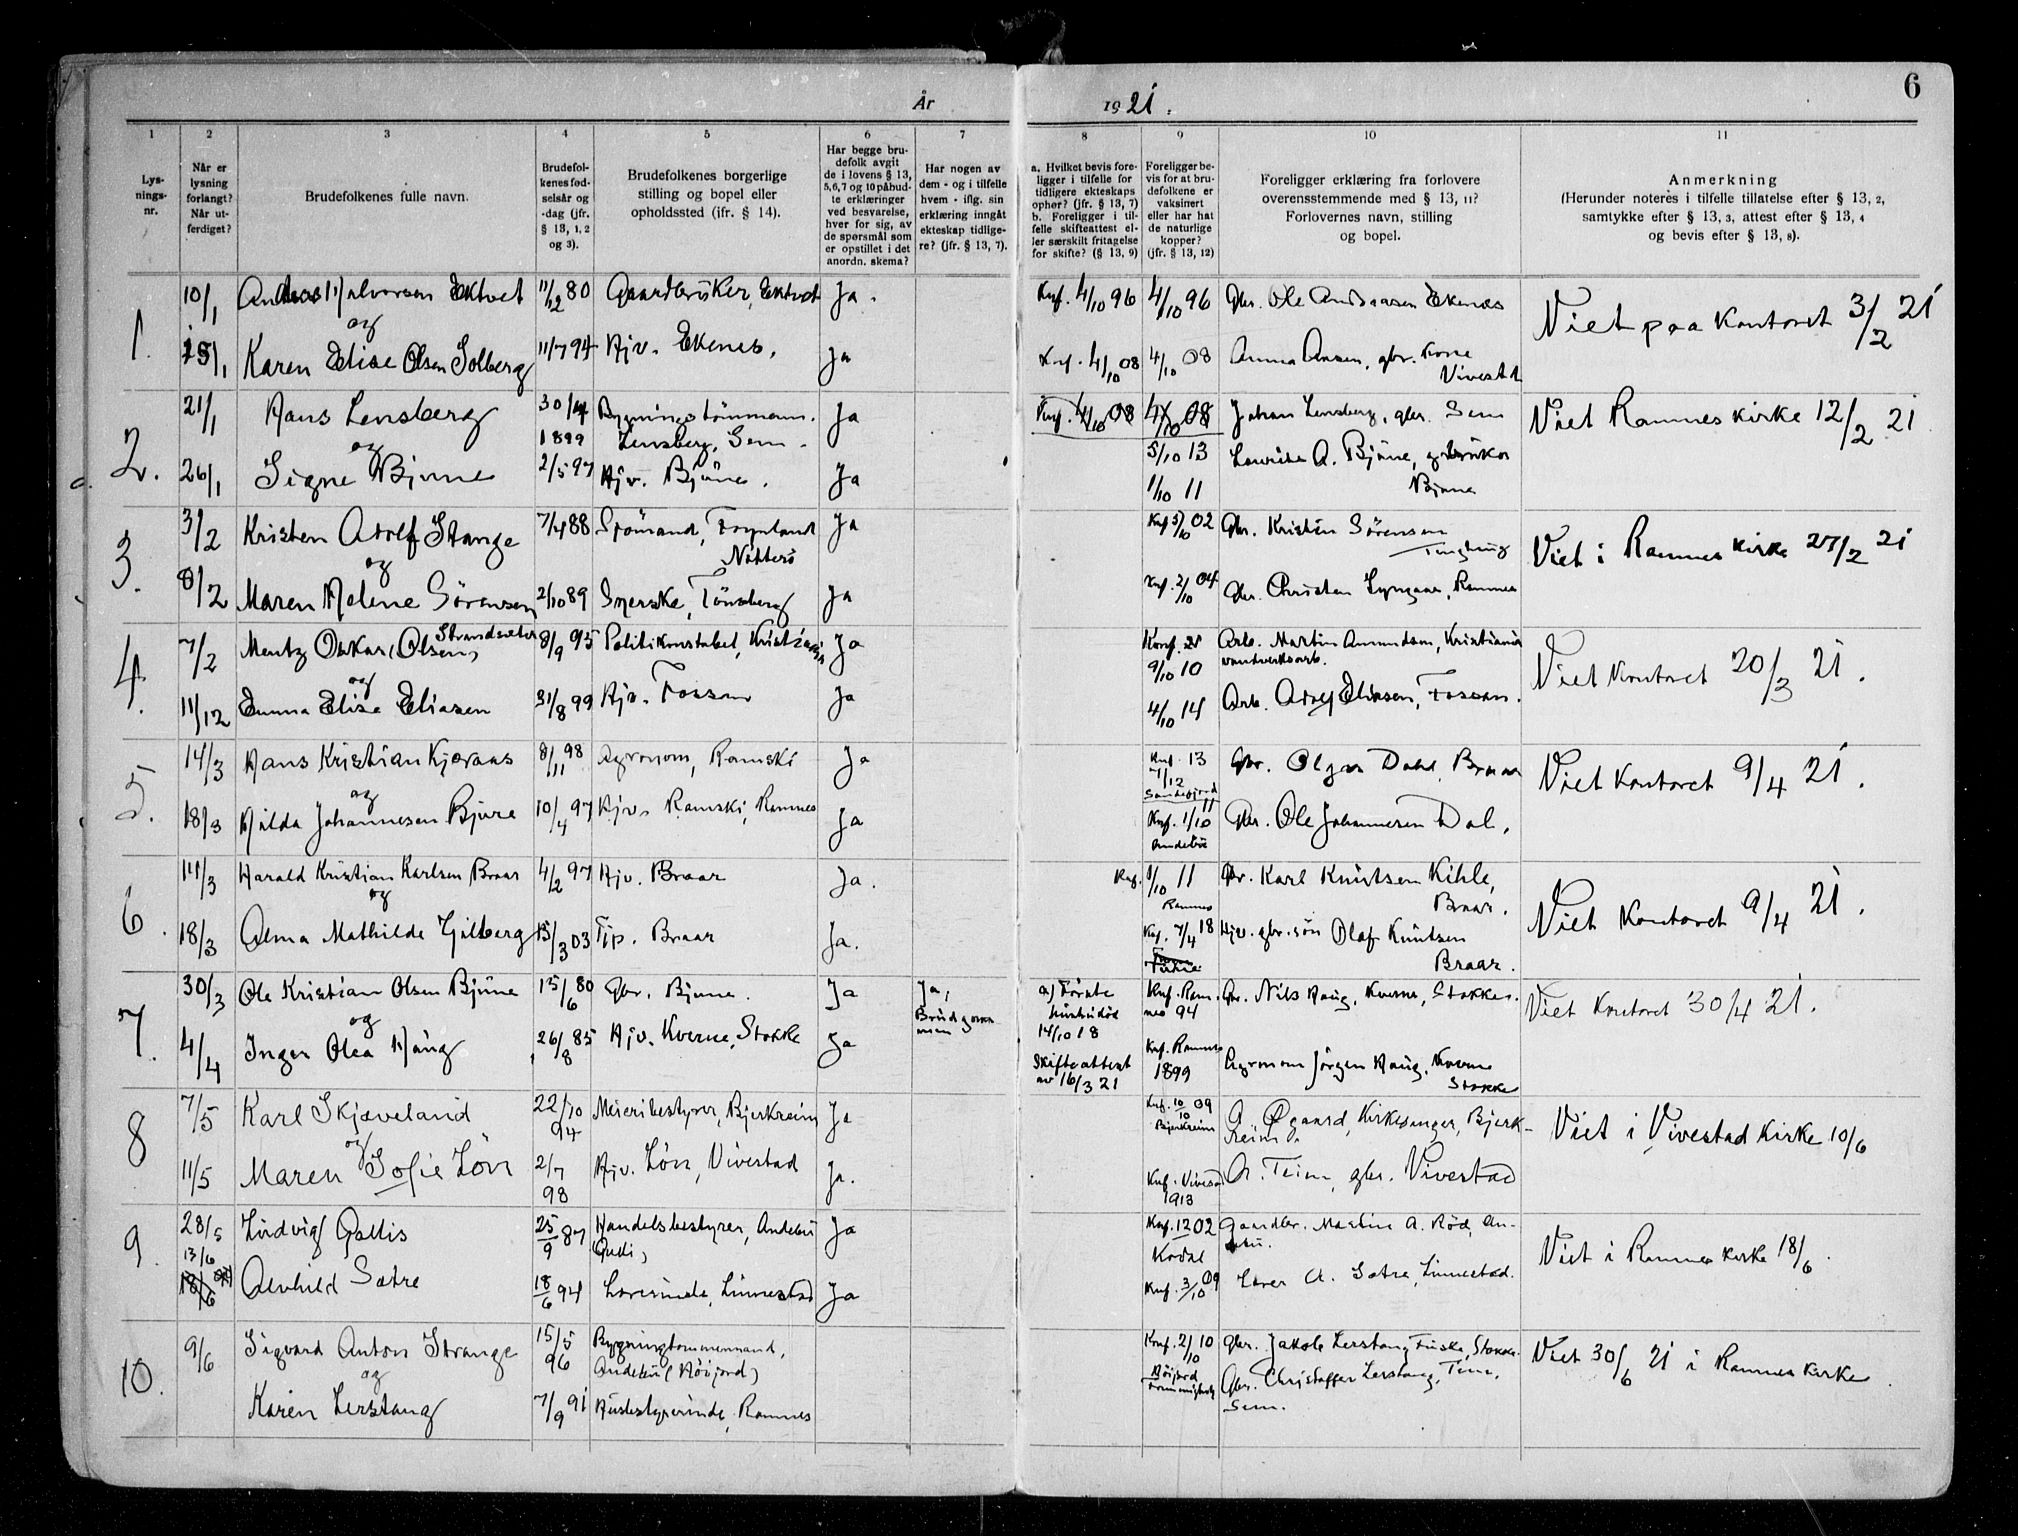 År 1921.
6
1 2 3 4 5 6 7 8 9 10 11
Lys-
nings-
nr.
Når er
lysning
forlangt?
Når ut-
ferdiget?
Brudefolkenes fulle navn.
Brudefol-
kenes fød-
selsår og
-dag (jfr.
§ 13, 1, 2
og 3).
Brudefolkenes borgerlige
stilling og bopel eller
opholdssted (ifr. § 14).
Har begge bru-
defolk avgit
de i lovens § 13,
5,6,7 og 10 påbud-
te erklæringer
ved besvarelse,
hver for sig, av
de spørsmål som
er opstillet i det
anordn. skema?
Har nogen av
dem - og i tilfelle
hvem - iflg. sin
erklæring inngåt
ekteskap tidlige-
re? (jfr. § 13, 7).
a. Hvilket bevis fore-
ligger i tilfelle for
tidligere ekteskaps
ophør? (jfr. § 13, 7)
b. Foreligger i til-
felle skifteattest el-
ler særskilt fritagelse
for skifte? (§ 13, 9)
Foreligger be-
vis for at bru-
defolkene er
vaksinert
eller har hat
de naturlige
kopper?
(jfr. § 13, 12)
Foreligger erklæring fra forlovere
overensstemmende med § 13, 11?
Forlovernes navn, stilling
og bopel.
Anmerkning
(Herunder noteres i tilfelle tillatelse efter § 13, 2,
samtykke efter § 13, 3, attest efter § 13, 4
og bevis efter § 13, 8).
1. 10/1 Halvorsen Ektvet 11/12 80 Gaardbruker, Ektvet Ja. Knf. 4/10 96 4/10 96 Gbr. Ole Andreasen Ekenes Viet paa Kontoret 3/2 21
og
15/1 Karen Elise Olsen Solberg 11/7 94 Hjv. Ekenes, Ja Knf. 4/10 08 4/10 08 Anna Ansen, gbr.
Vivestad
2. 21/1 Hans Lensberg 30/4 1899 Bygningstömmerm. Lensberg, Sem. Ja Knf. 4/10 08 4/10 08 Johan Lensberg, gbr. Sem Viet Ramnes kirke 12/2 21
og
26/1 Signe Bjune 2/5 97 Hjv. Bjüne. Ja 5/10 13 A. Bjüne, gbrüker
1/10 11 Bjüne
3. 3/2 Kristen Adolf Stange 7/4 88 Sjömand, Föynland Nötterö Ja Knf 5/10 02 Gbr. Kristen Sörensen Viet i Ramnes kirke 27/2 21
og
8/2 Maren Helene Sörensen 2/10 89 Syerske, Tönsberg Ja Knf. 2/10 04 Gbr. Christen Lyngaas, Ramnes
4. 7/2 Mentz Oskar (Olsen) Strandsæter 8/9 95 Politikonstabel, Kristiania Ja Konf. 9/10 10 Arb. Martin Amundsen, Kristiania Viet Kontoret 20/3 21.
og
11/12 Emma Elise Eliasen 31/8 99 Hjv. Fossan Ja 4/10 14 Arb. Adolf Eliasen, Fossan.
5. 14/3 Hans Kristian Kjæraas 8/11 98 Agronom, Ramski Ja Knf. 13 Sandefjord Gbr. Olgar Dahl, Braar Viet Kontoret 9/4 21.
og
18/3 Hilda Johannesen Bjüre 10/4 97 Hjv. Ramski, Ramnes Ja Knf. 1/10 11 Andebü Gbr. Ole Johannesen Dal,
6. 14/3 Harald Kristian Karlsen Braar 4/2 97 Hjv. Braar Ja. Knf. 1/10 11 Ramnes Gbr. Karl Knutsen Kihle, Braar. Viet Kontoret 9/4 21.
og
18/3 Alma Mathilde Gilberg 15/3 03 Tjp. Braar Ja. Knf. 7/4 18 Hjv. gbr.sön Olaf Knutsen
Braar.
7. 30/3 Ole Kristian Olsen Bjüne 15/6 80 Gbr. Bjune. Ja Ja, Brüdgommen a) Förste hüstrü död 14/10 18 Knf. Ramnes 94 Gbr. Nils Haug, Kverne, Stokke. Viet Kontoret 30/4 21.
og
4/4 Inger Olea Haüg 26/8 85 Hjv. Kverne, Stokke Ja Skifteattest av 16/3 21 Knf. Ramnes 1899 Agronom Jörgen Haug, Kverne
Stokke
8 7/5 Karl Skjæveland 22/10 94 Meieribestyrer, Bjerkreim Ja Knf. 10/10 09 Bjerkreim A. Øgaard, Kirkesanger, Bjerkreim. Viet i Vivestad Kirke 10/6
og
11/5 Maren Sofie Lön 2/7 98 Hjv. Lön, Vivestad Ja. Knf. Vivestad 1913 A. Teim, gbr. Vivestad
9. 28/5 Lüdvig Gallis 25/9 87 Handelsbestyrer, Andebü Ja Knf. 12 02 Kodal Gaardbr. Martin A. Röd, Andebü. Viet i Ramnes kirke 18/6.
13/6
18/6 Alvhild Sætre 18/6 94 Lærerinde, Linnestad Ja Knf. 3/10 09 Lærer A. Sætre, Linnestad.
10. 9/6 Sigvard Anton Strange 15/5 96 Bygningtømmermand, Andebü (Höijord) Knf. 2/10 10 Höijord Gbr. Jakob Lerstang, Füske, Stokke. Viet 30/6 21 i Ramnes kirke
og
Karen Lerstang 7/9 91 Hüsbestyrerinde, Ramnes Gbr. Christoffer Lerstang, Teie,
Sem.